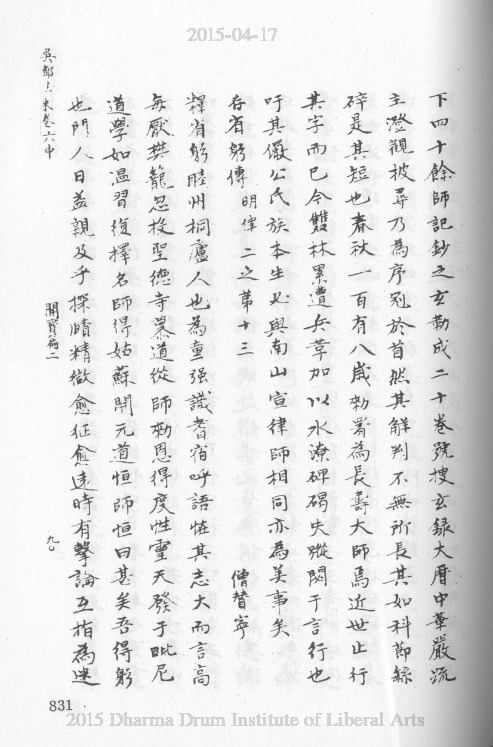 2015-04-17
下四十餘師記鈔之玄勒成二十卷號搜玄錄大曆中華嚴疏
主澄觀披尋乃為序別於首然其解判不無所長其如科節繇
碎是其短也春秋一百有八歲勑署為長壽大師焉近世止行
其字而已今雙林累遭兵革加以水潦碑碣失蹤闕于言行也
吁其儼公氏族本生 與南山宣律師相同亦為美事矣
存省躬傳 明律二之第十三 僧贊寧
釋省躬睦州桐廬人也為童强識耆宿呼語恠其志大而言高
每厭樊籠忽投聖德寺慕道從師勑恩得度性靈天發于毗尼
道學如温習復擇名師得姑蘇開元道恒師恒曰甚矣吾得躬
也門人日益親及乎探賾精微愈征愈遠時有擊論互指為迷
吳都 卷六中
開寶篇二
九〇
831
2015 Dharma Drum Institute of Liberal Arts